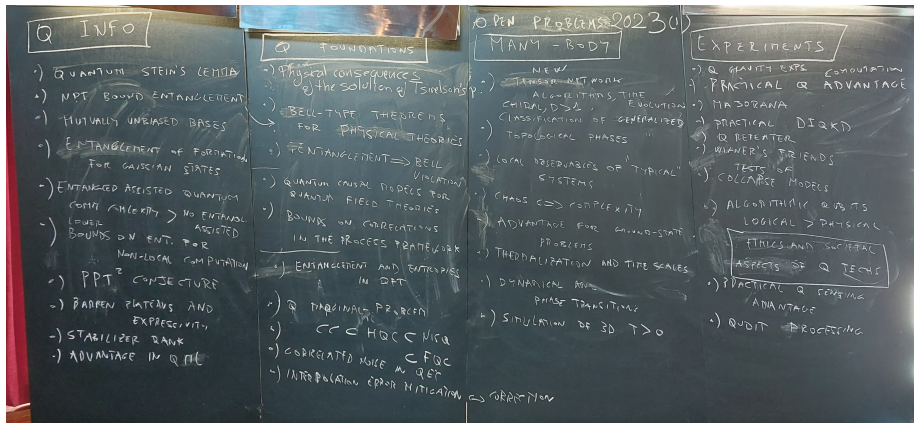 Q INFO
·) QUANTUM STEIN'S LEMMA
·) NPT BOUND ENTANGLEMENT
·) MUTUALLY UNBIASED BASES
·) ENTANGLEMENT OF FORMATION
FOR GAUSSIAN STATES
·) ENTANGLED ASSISTED QUANTUM
COMM COMPLEXITY > NO ENTANGL
ASSISTED
·) LOWER
BOUNDS ON ENT. FOR
NON-LOCAL COMPUTATION
·) PPT² CONJECTURE
·) BARREN PLATEAUS AND
EXPRESSIVITY
·) STABILIZER RANK
·) ADVANTAGE IN QML
Q FOUNDATIONS
·) Physical consequences
of the solution of Tsirelson's p.
·) BELL-TYPE THEOREMS
FOR PHYSICAL THEORIES
·) ENTANGLEMENT => BELL
VIOLATION
·) QUANTUM CAUSAL MODELS FOR
QUANTUM FIELD THEORIES
·) BOUNDS ON CORRELATIONS
IN THE PROCESS FRAMEWORK
·) ENTANGLEMENT AND ENTROPIES
IN QFT
·) Q MARGINAL PROBLEM
·) CC ⊂ HQC ⊂ NISQ
⊂ FQC
·) CORRELATED NOISE IN QEC
·) INTERPOLATION ERROR MITIGATION <-> CORRECTION
OPEN PROBLEMS 2023 (1)
MANY-BODY
NEW
·) TENSOR NETWORK
ALGORITHMS, TIME
EVOLUTION
CHIRAL, D>1
·) CLASSIFICATION OF GENERALIZED
TOPOLOGICAL PHASES
·) LOCAL OBSERVABLES OF "TYPICAL"
SYSTEMS
·) CHAOS <=> COMPLEXITY
·) ADVANTAGE FOR GROUND-STATE
PROBLEMS
·) THERMALIZATION AND TIME SCALES
·) DYNAMICAL AND
PHASE TRANSITIONS
·) SIMULATION OF 3D T>0
EXPERIMENTS
·) Q GRAVITY EXPS
COMPUTATION
·) PRACTICAL Q ADVANTAGE
·) MAJORANA
·) PRACTICAL DIQKD
·) Q REPEATER
·) WIGNER'S FRIENDS
TESTS OF
·) COLLAPSE MODELS
·) ALGORITHMIC QUBITS
LOGICAL > PHYSICAL
ETHICS AND SOCIETAL
ASPECTS OF Q TECHS
·) PRACTICAL Q SENSING
ADVANTAGE
·) QUDIT PROCESSING